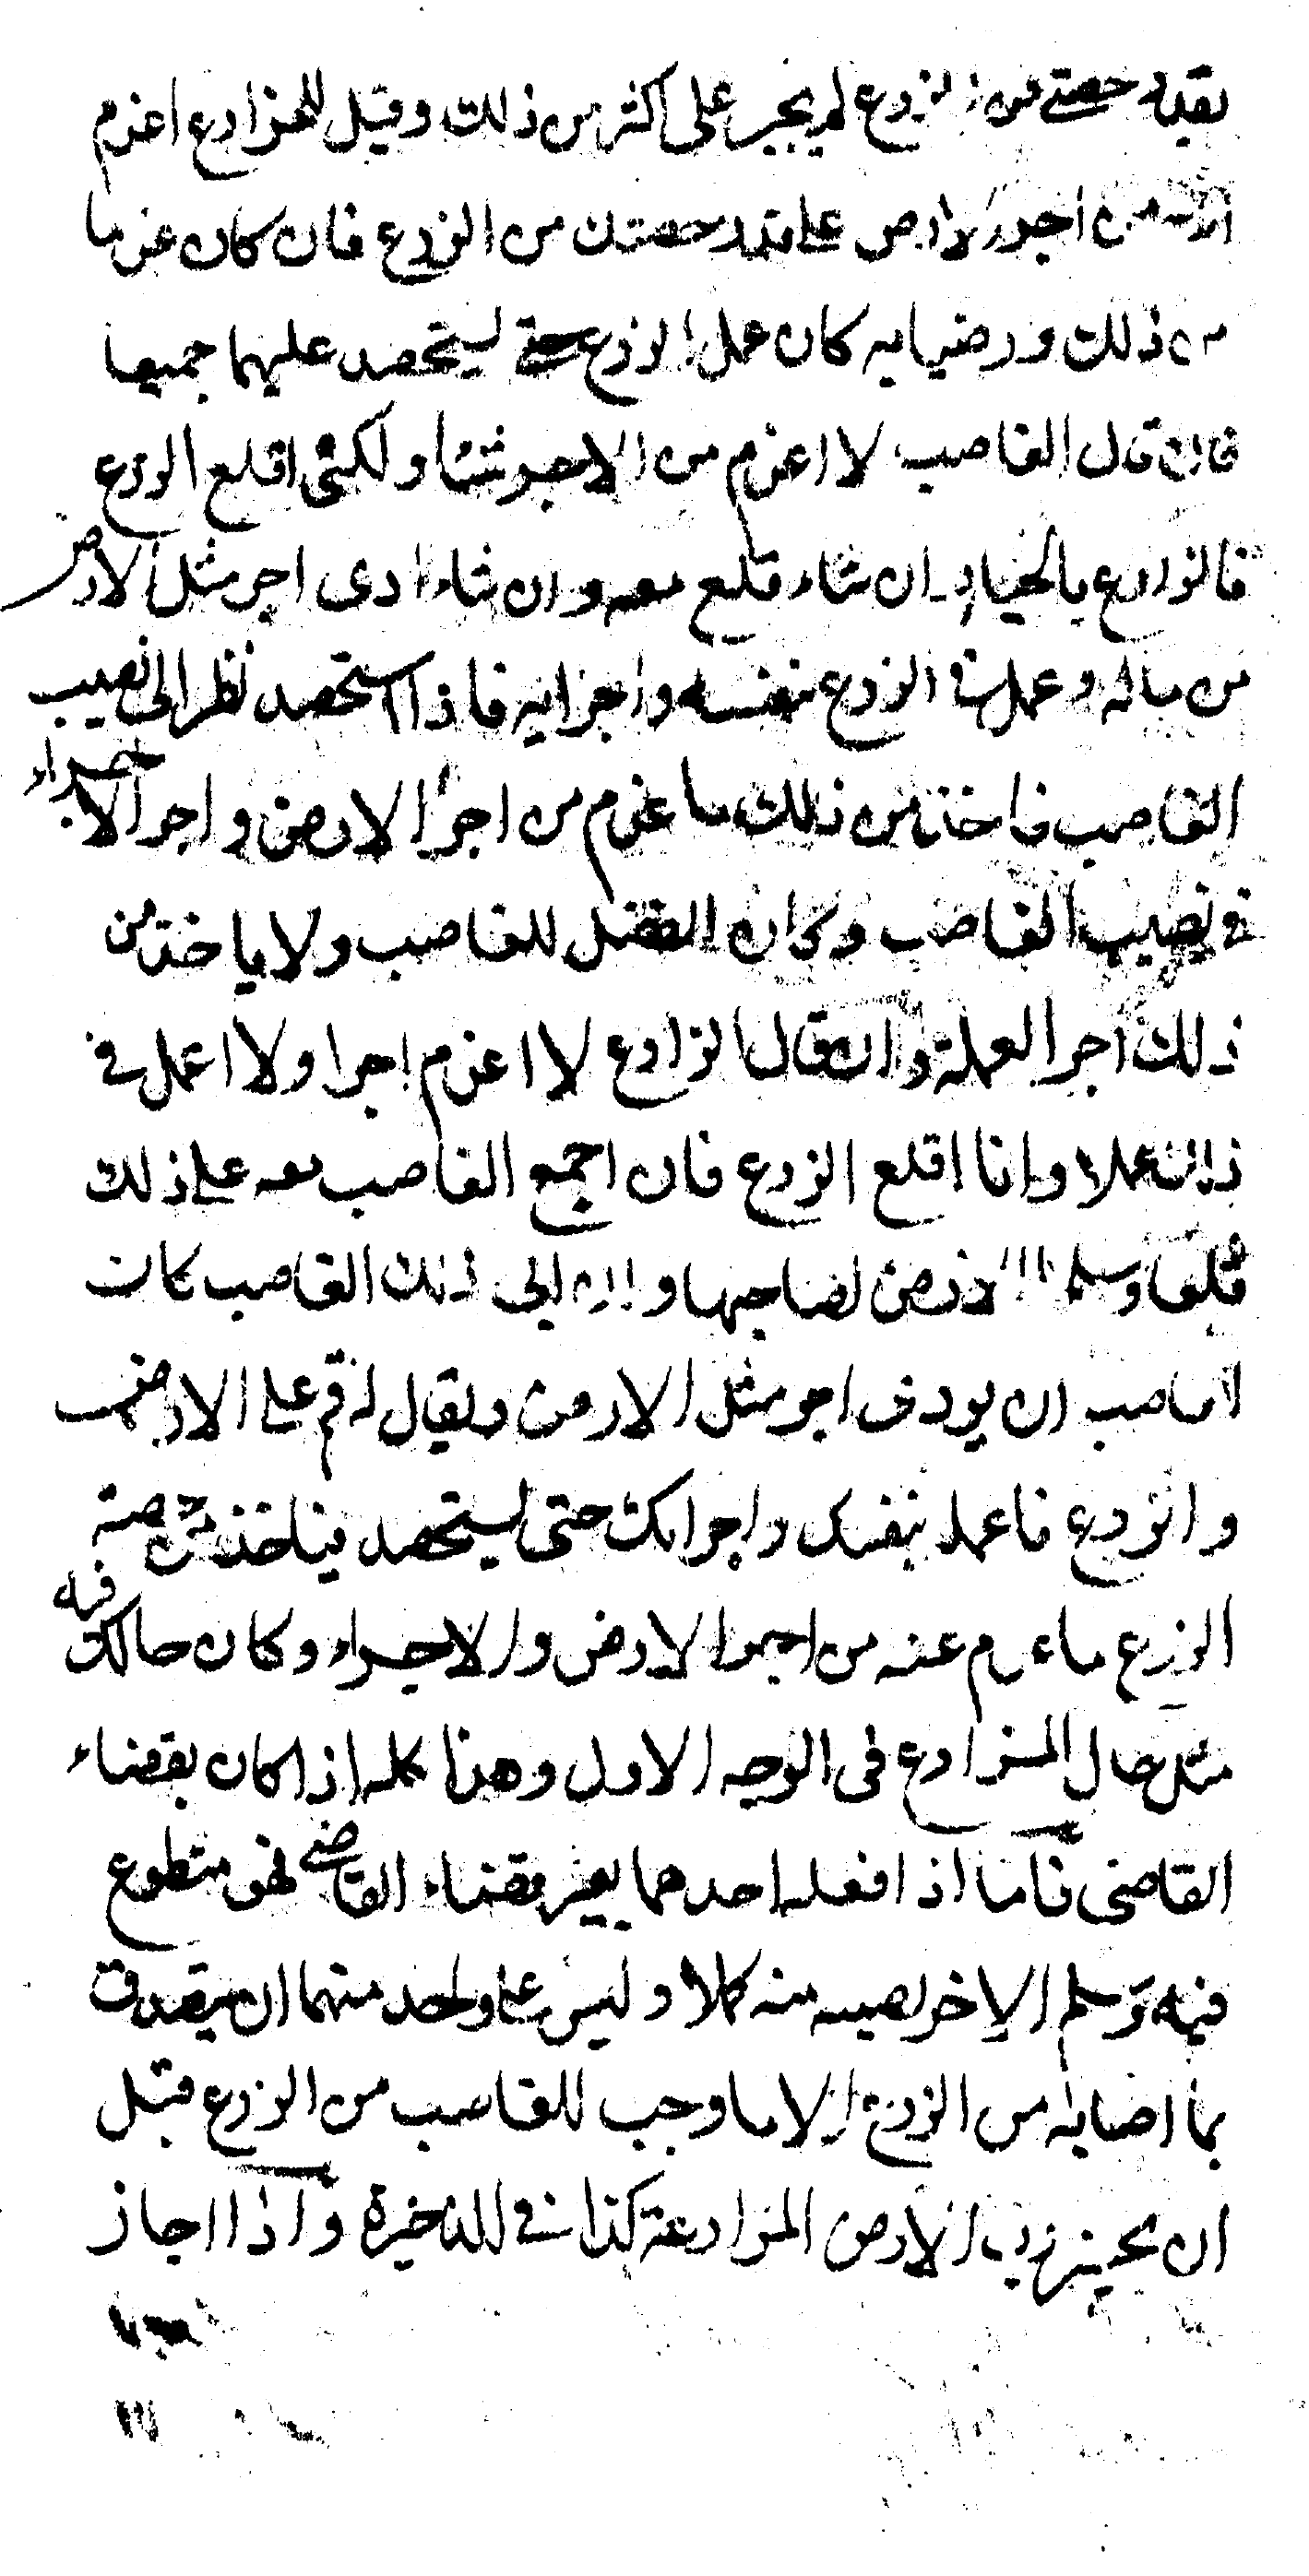 بقدر حصتي من الزرع لم يجبر على اكثر من ذلك وقيل للمزارع اغرم
انت من اجر الارض على قدر حصتك من الزرع فان كان غرما
من ذلك ورضيا به كان عمل الزرع حتى يستحصد عليهما جميعا
فان قال الغاصب لا اغرم من الاجر شيئا ولكني اقلع الزرع
فالزارع بالخيار ان شاء قلع معه وان شاء ادى اجر مثل الارض
من ماله وعمل في الزرع بنفسه واجرايه فاذا استحصد نظر الى نصيب
الغاصب فاخذ من ذلك ما غرم من اجر الارض واجر الاجراء
في نصيب الغاصب وكان الفضل للغاصب ولا ياخذ من
ذلك اجر العملة وان قال الزارع لا اغرم اجرا ولا اعمل في
ذلك عملا وانا اقلع الزرع فان اجمع الغاصب معه على ذلك
قلعا وسلما الارض لصاحبها وان ابى ذلك الغاصب كان
الغاصب ان يودي اجر مثل الارض ويقال له قم على الارض
والزرع فاعمل بنفسك واجرايك حتى يستحصد فياخذ من حصة
الزرع ما غرم عنه من اجر الارض والاجراء وكان حالك فيه
مثل حال المزارع في الوجه الاول وهذا كله اذا كان بقضاء
القاضي فاما اذا فعله احدهما بغير قضاء القاضي فهو متطوع
فيه وسلم الاخر نصيبه منه كملا وليس على واحد منهما ان يتصدق
بما اصابه من الزرع الا ما وجب للغاصب من الزرع قبل
ان يجيز رب الارض المزارعة كذا في الذخيرة واذا اجاز